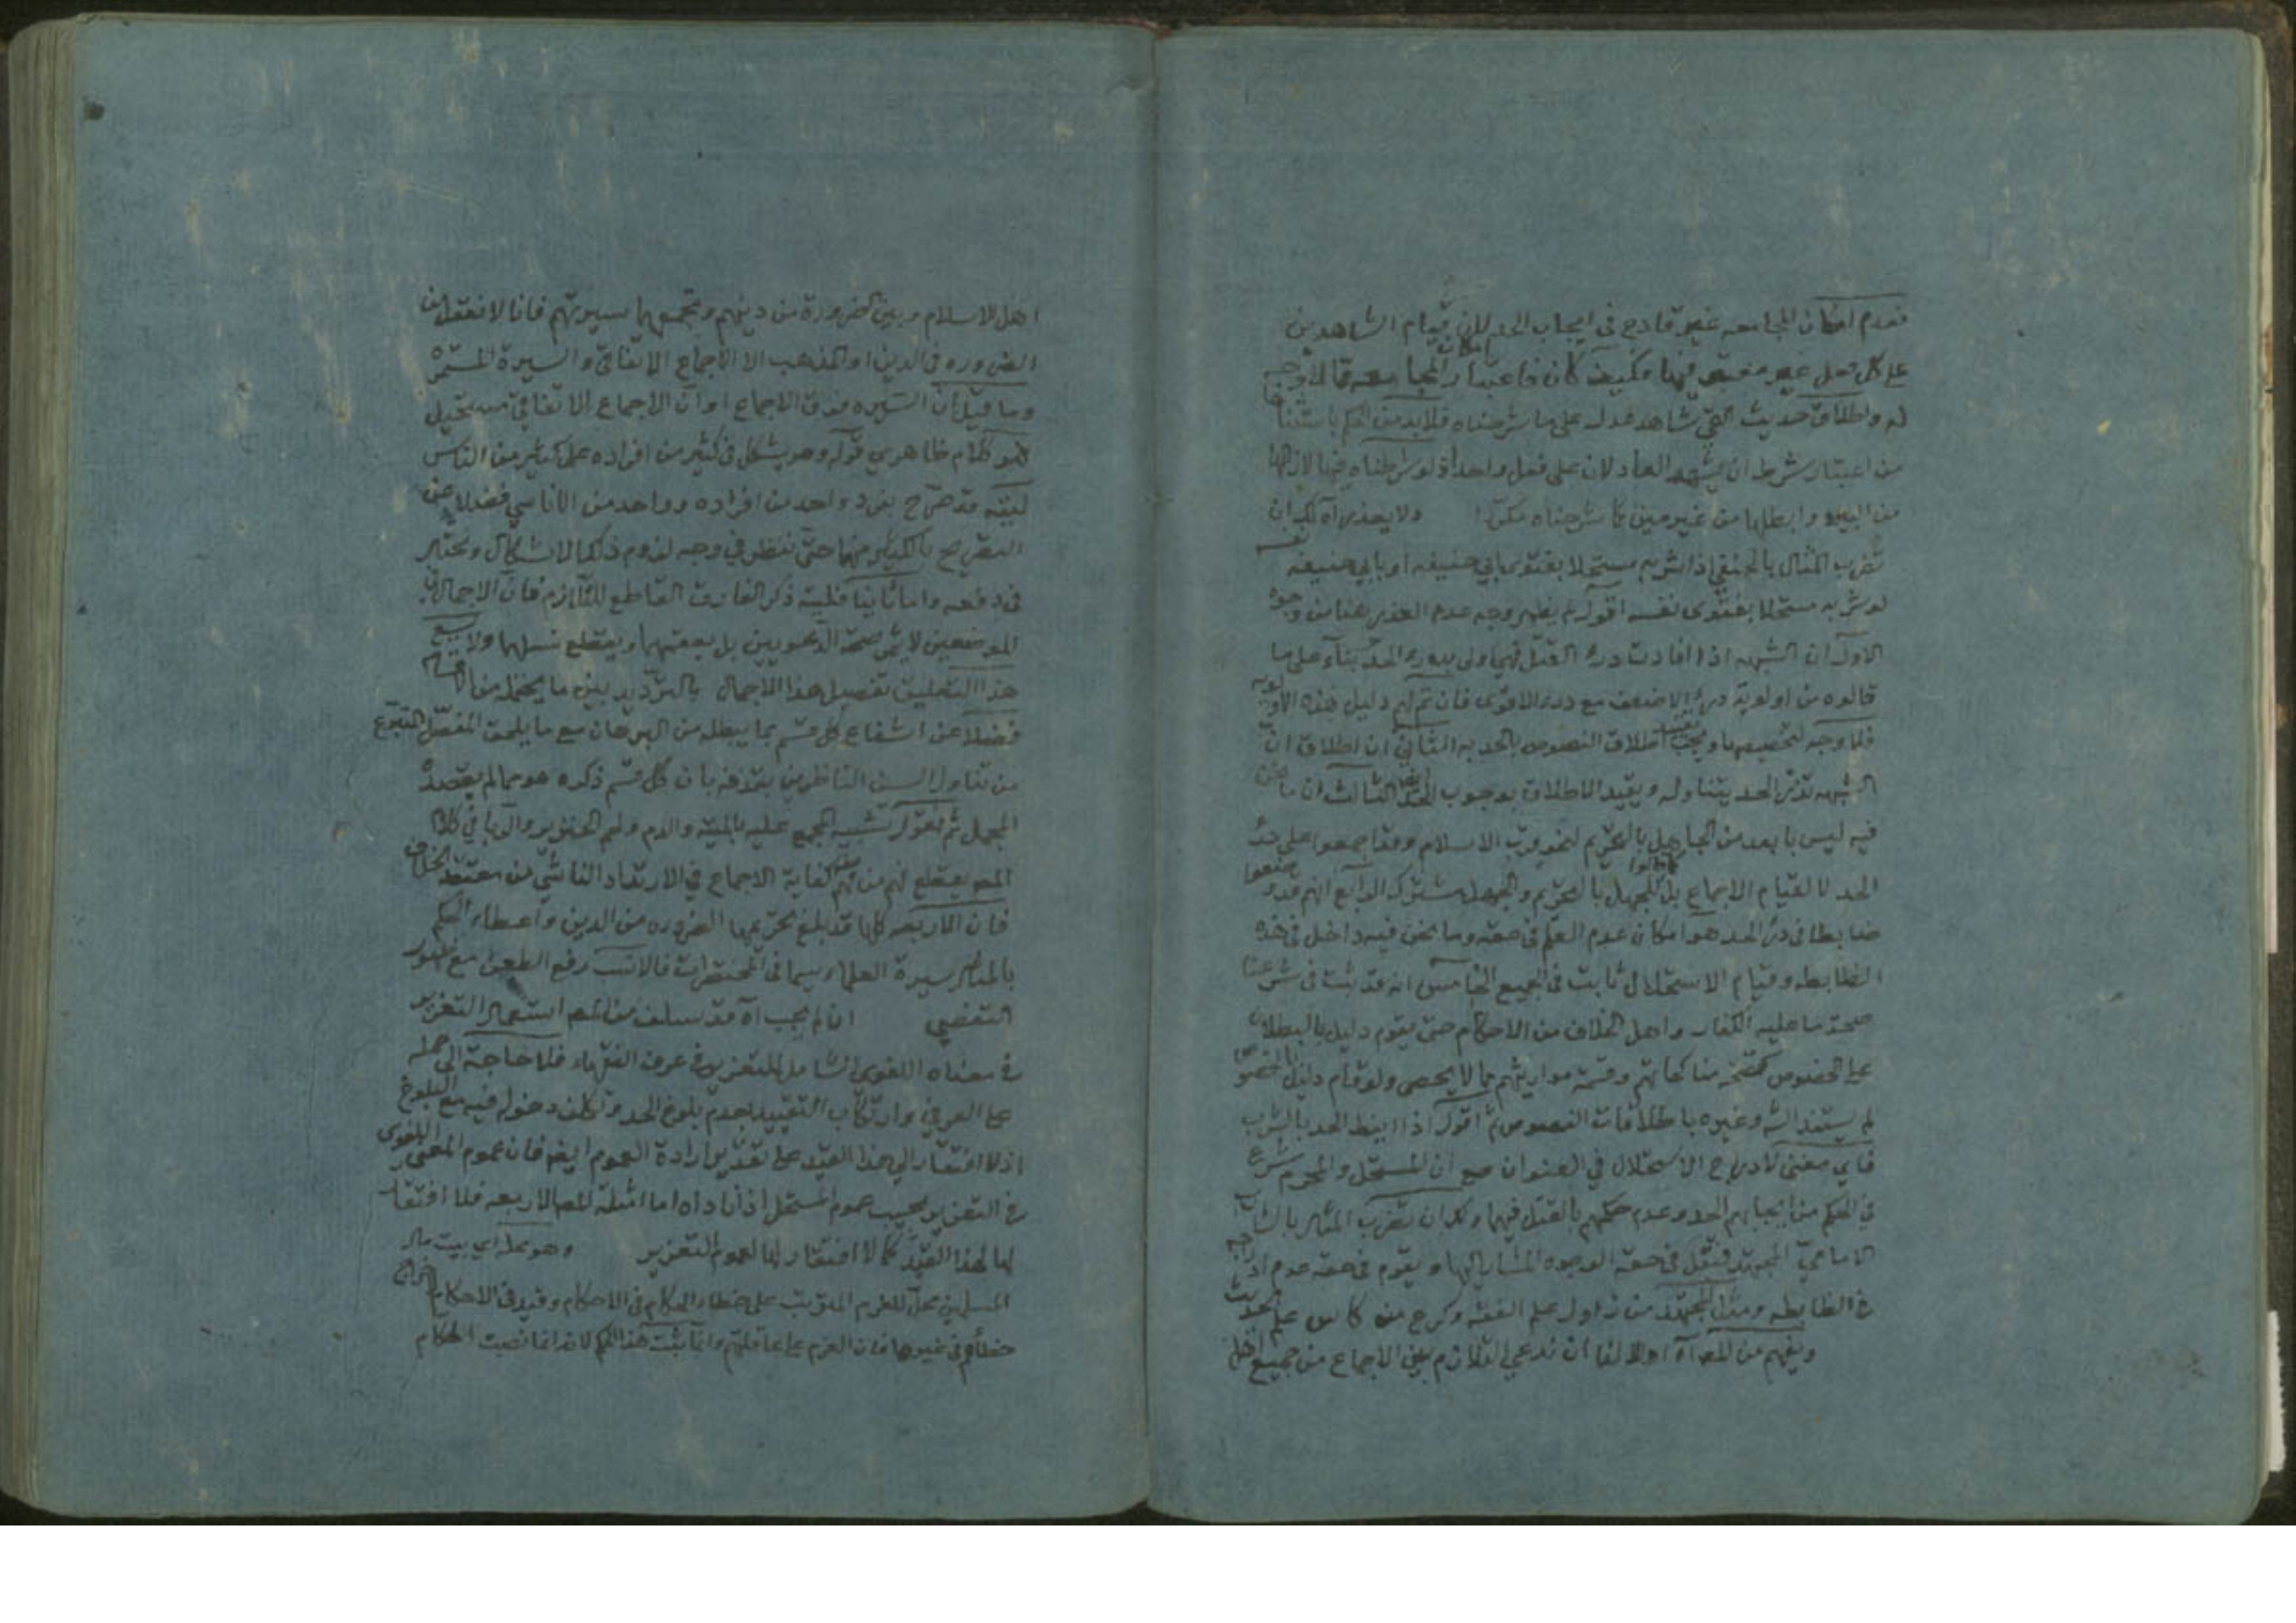 فعدم امكان المجامعه غير قادح في ايجاب الحد لان قيام الشاهدين
على كل فعل غير مختص فيها فكيف كان فاعتبار امكان المجامعه قالا وجه
له واطلاق حديث شاهد عدله على ما شرحناه فلابد من الحكم باستثنا
من اعتبار شرط ان يشهد العادلان على فعل واحد اذ لو شرطناه فيها لازالها
من البين وابطلها من غير مين كما شرحناه مكررا ولا يعذر اه لك ان
تضرب المثال بالحنفي اذا شربه مستحلا بفتوى ابي حنيفه او بابي حنيفه نفسه
لو شربه مستحلا بفتوى نفسه اقول لم يظهر وجه عدم العذر هنا من وجوه
الاول ان الشبهه اذا افادت درء القتل فهي اولى بدرء الحد بناء على ما
قالوه من اولوية درء الاضعف مع درء الاقوى فان تم لهم دليل هذه الاولويه
فلا وجه لتخصيصها اطلاق النصوص بالحد به الثاني ان اطلاق ان
الشبهه تدرء الحد يتناوله ويقيد الاطلاق بوجوب الحد الثالث ان ما نحن
فيه ليس بابعد من الجاهل بالتحريم لنحو قرب الاسلام وقد اجمعوا على درء
الحد لا لقيام الاجماع بل للجهل بالتحريم والجهل مشترك الرابع انهم قد وضعوا
ضابطا في درء الحد هو امكان عدم العلم في حقه وما نحن فيه داخل في هذه
الضابطه وقيام الاستحلال ثابت في الجميع الخامس انه قد ثبت في شرعنا
صحة ما عليه الكفار واهل الخلاف من الاحكام حتى يقوم دليل بالبطلان
على الخصوص كصحة مناكحاتهم وقسمة مواريثهم مما لا يحصى ولو قام دليل بالخصوص
لم يستند الش وغيره باطلاقات النصوص ثم اقول اذا انيط الحد بالشرب
فاي معنى لادراج الاستحلال في العنوان مع ان المستحل والمحرم شرع
في الحكم من ايجابهم الحد وعدم حكمهم بالقتل فيهما ولك ان تضرب المثال بالشارب
الامامي المجتهد فنقل في حقه الوجوه المشار اليها ويقوم في حقه عدم
في الضابطه ومثل المجتهد من زاول علم الفقه وكرع من كاس علم الحديث
ويفهم من المص اه اولا لنا ان ندعي التلازم بين الاجماع من جميع اهل
اهل الاسلام وبين الضرورة من دينهم وتجمعها سيرتهم فانا لا نعقل من
الضروره في الدين او المذهب الا الاجماع الاتفاقي والسيرة المستمره
وما قيل ان السيره فوق الاجماع او ان الاجماع الاتفاقي مستحيل
فهو كلام ظاهري قوله وهو يشكل في كثير من افراده على كثير من الناس
ليته قد صرح بفرد واحد من افراده وواحد من الاناسي فضلا عن
التصريح بالكثير منها حتى ننظر في وجه لزوم ذلك الاشكال ونختبر
في دفعه واما ثانيا فليته ذكر الفارق القاطع للتلازم فان الاجمال في
الموضعين لا يثمر صحة الدعويين بل يعقمها ويقطع نسلها ولا يسع
هذا التعليق تفصيل هذا الاجمال بالترديد بين ما يحتمله من الاقسام
فضلا عن اشفاع كل قسم بما يبطله من البرهان مع ما يلحق المفصل المتبرع
من تناول السن الناظرين بقذفه بان كل قسم ذكره هو مما لم يقصده
المجمل ثم نقول تشبيه المجمع عليه بالميته والدم ولحم الخنزير والربا في كلام
المص يقطع لهم من فهم كفاية الاجماع في الارتداد الناشئ من معتقد الخلاف
فان الاربعه كلها قد بلغ تحريمها الضروره من الدين واعطاء الحكم
بالمثال سيرة العلماء سيما في المختصرات فالانسب رفع الطعن مع ظهور
التفصي ان لم يجب اه قد سلف من المص استعمال التعزير
في معناه اللغوي الشامل للتعزير في عرف الفقهاء فلا حاجة الى حمله
على العرفي وارتكاب التقييد بعدم بلوغ الحد وتكلف دخوله فيه مع البلوغ
اذ لا افتقار الى هذا القيد على تقدير ارادة العموم ايضا فان عموم المعنى اللغوي
في التعزير بحسب عموم المستحل اذ اداه اما امثلة المص الاربعه فلا افتقار
لها لهذا القيد كما لا افتقار لها لعموم التعزير وهو محله اي بيت مال
المسلمين محل للغرم المترتب على خطاء الحكام في الاحكام وقيد في الاحكام لاخراج
خطأهم في غيرها فان الغرم على عاقلتهم وانما ثبت هذا الحكم لانه انما نصب الحكام